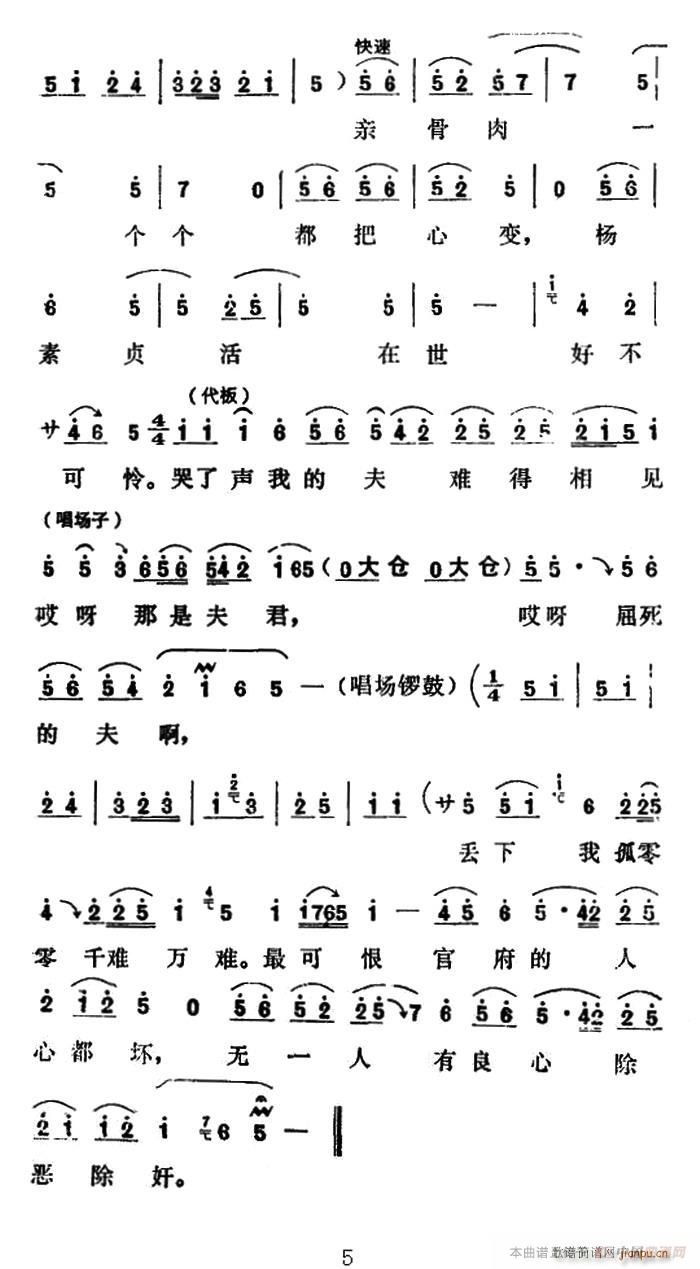 快速
5 i 2 4 | 3 2 3 2 i | 5 ) 5 6 | 5 2 5 7 | 7 5 |
亲 骨 肉 一
5 5 | 7 0 | 5 6 5 6 | 5 2 5 | 0 5 6 |
个 个 都 把 心 变， 杨
6 5 | 5 2 5 | 5 5 | 5 — | i 4 2 |
素 贞 活 在 世 好 不
（代板）
サ 4 6 5 4/4 i i i 6 5 6 5 4 2 2 5 2 5 2 i 5 i
可 怜。哭了 声 我 的 夫 难 得 相 见
（唱场子）
5 5 3 6 5 6 5 4 2 i 6 5 （0 大 仓 0 大 仓） 5 5 · 5 6
哎 呀 那 是 夫 君， 哎 呀 屈 死
5 6 5 4 2 i 6 5 — （唱场锣鼓） （1/4 5 i | 5 i |
的 夫 啊，
2 4 | 3 2 3 | i 2 3 | 2 5 | i i （サ 5 5 i i 6 2 2 5
丢 下 我 孤 零
4 2 2 5 i 4 5 i i 7 6 5 i — 4 5 6 5 · 4 2 2 5
零 千 难 万 难。最 可 恨 官 府 的 人
2 i 2 5 0 5 6 5 2 2 5 7 6 5 6 5 · 4 2 2 5
心 都 坏， 无 一 人 有 良 心 除
2 i i 2 i 7 6 5 —
恶 除 奸。
5